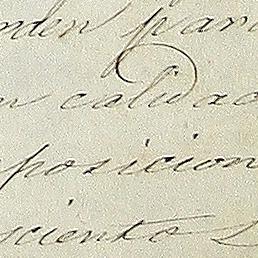 nden para
n calidad
posicion
sciento s